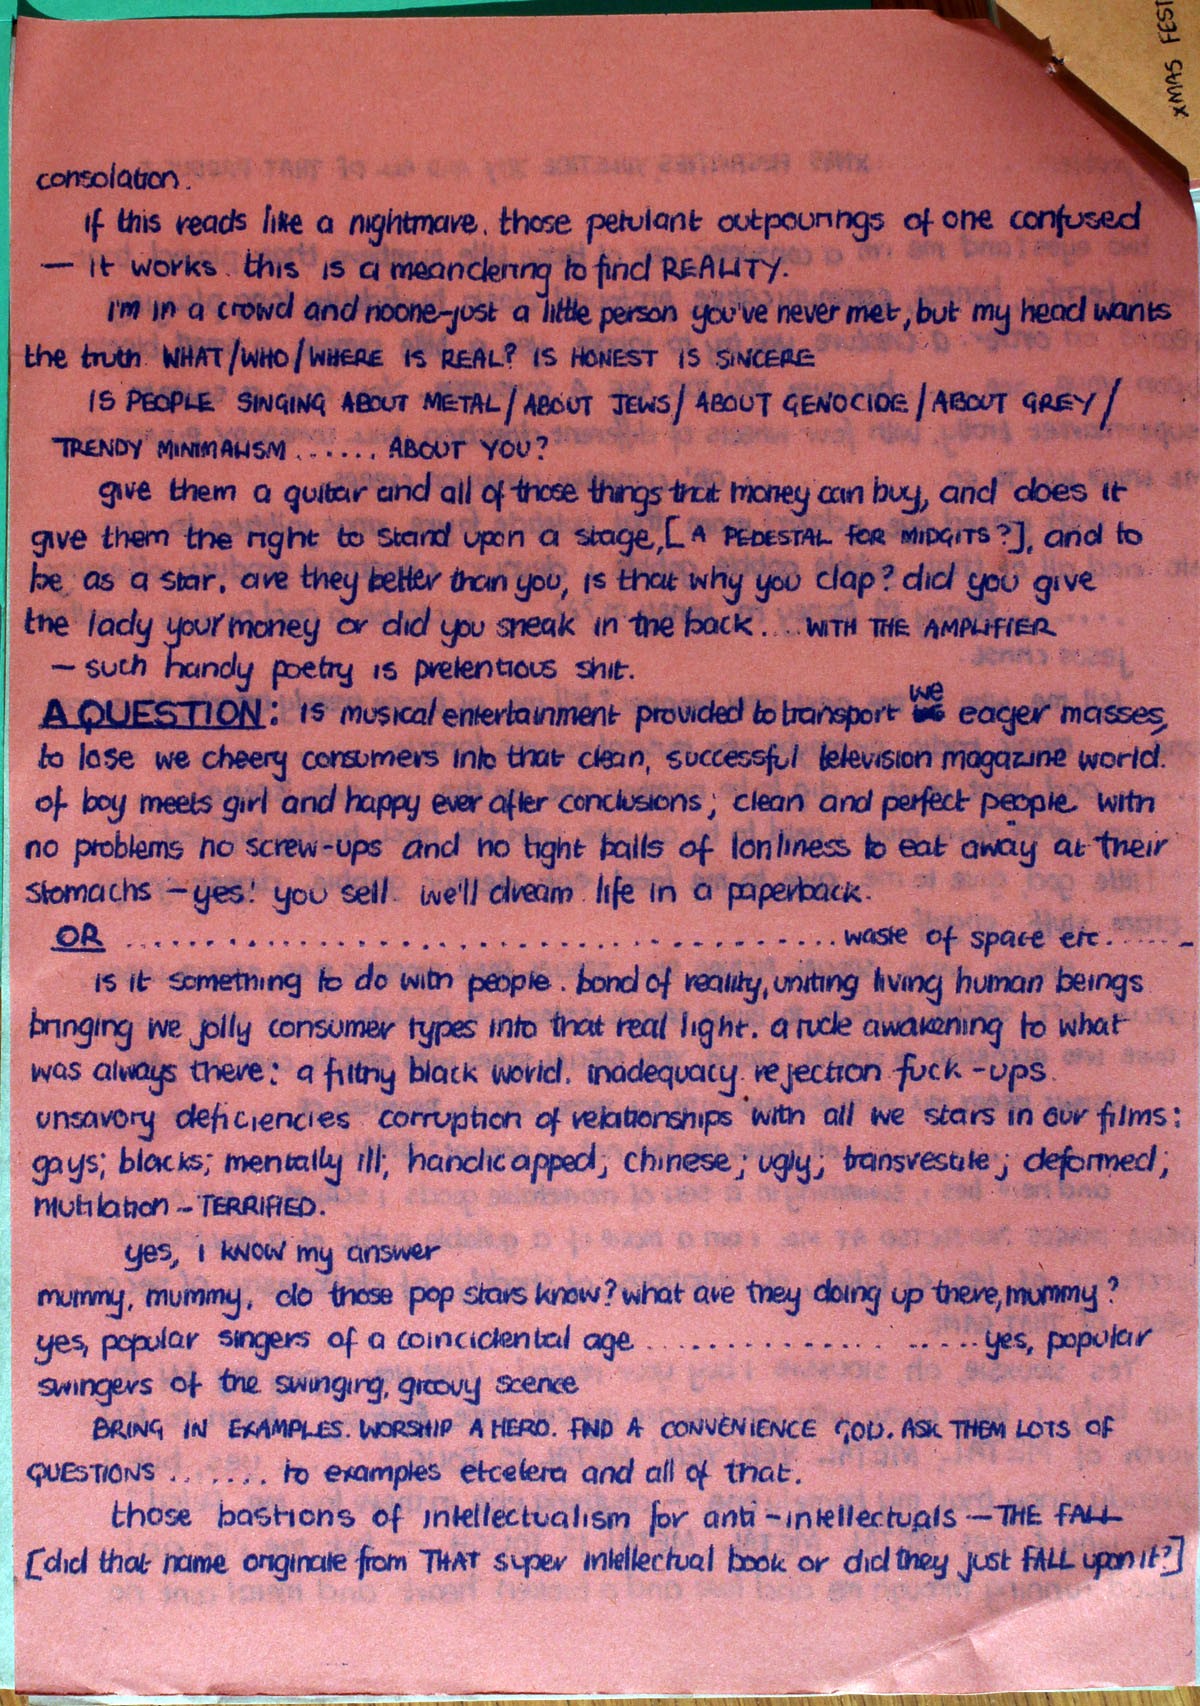 XMAS FEST
consolation.
if this reads like a nightmare. those petulant outpourings of one confused
— it works. this is a meandering to find REALITY.
i'm in a crowd and noone-just a little person you've never met, but my head wants
the truth WHAT/WHO/WHERE IS REAL? IS HONEST IS SINCERE
IS PEOPLE SINGING ABOUT METAL/ABOUT JEWS/ABOUT GENOCIDE/ABOUT GREY/
TRENDY MINIMALISM...... ABOUT YOU?
give them a guitar and all of those things that money can buy, and does it
give them the right to stand upon a stage,[A PEDESTAL FOR MIDGITS?], and to
be, as a star, are they better than you, is that why you clap? did you give
the lady your money or did you sneak in the back.... WITH THE AMPLIFIER
— such handy poetry is pretentious shit.
A QUESTION: is musical entertainment provided to transport we eager masses,
to lose we cheery consumers into that clean, successful television magazine world.
of boy meets girl and happy ever after conclusions; clean and perfect people with
no problems no screw-ups and no tight balls of lonliness to eat away at their
stomachs – yes! you sell we'll dream life in a paperback.
OR ........................................ waste of space etc......
is it something to do with people. bond of reality, uniting living human beings
bringing we jolly consumer types into that real light. a rude awakening to what
was always there: a filthy black world. inadequacy. rejection fuck-ups.
unsavory deficiencies corruption of relationships with all we stars in our films:
gays; blacks; mentally ill; handicapped; chinese; ugly; transvestite; deformed;
mutilation – TERRIFIED.
yes, i KNOW my answer
mummy, mummy, do those pop stars know? what are they doing up there, mummy?
yes, popular singers of a coincidental age..................... yes, popular
swingers of the swinging, groovy scence
BRING IN EXAMPLES. WORSHIP A HERO. FIND A CONVENIENCE GOD. ASK THEM LOTS OF
QUESTIONS ....... to examples etcetera and all of that.
those bastions of intellectualism for anti-intellectuals — THE FALL
[did that name originate from THAT super intellectual book or did they just FALL upon it?]